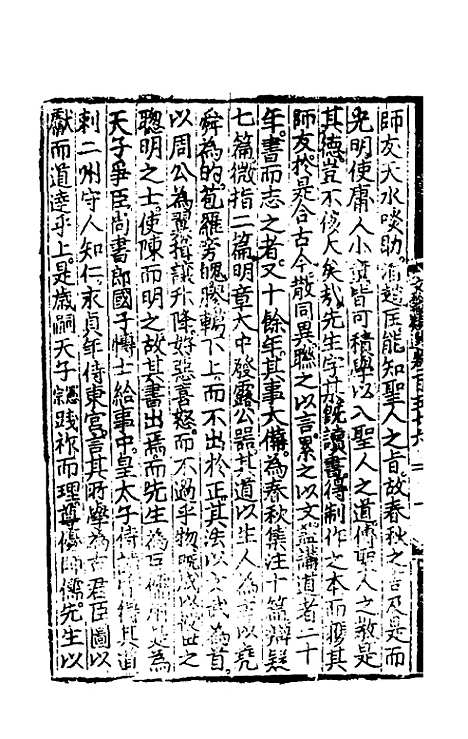 師友天水啖助洎趙匡能知聖人之旨故春秋之言及是而
光明使庸人小童皆可積學以入聖人之道傳聖人之教是
其德豈不侈大矣哉先生字某既讀書得制作之本而獲其
師友於是合古今散同異聯之以言累之以文蓋講道者二十
年書而志之者又十餘年其事大備為春秋集注十篇辯疑
七篇微指二篇明章大中發露公器其道以生人為主以堯
舜為的苞羅旁魄膠轕下上而不出於正其法以文武為首
以周公為翼揖讓升降好惡喜怒而不過乎物既成以授世之
聰明之士使陳而明之故其書出焉而先生為巨儒用是為
天子爭臣尚書郎國子博士給事中皇太子侍讀皆得其道
刺二州守人知仁永貞年侍東宮言其所學為古君臣圖以
獻而道達乎上是歲嗣天子憲宗踐祚而理尊優師儒先生以